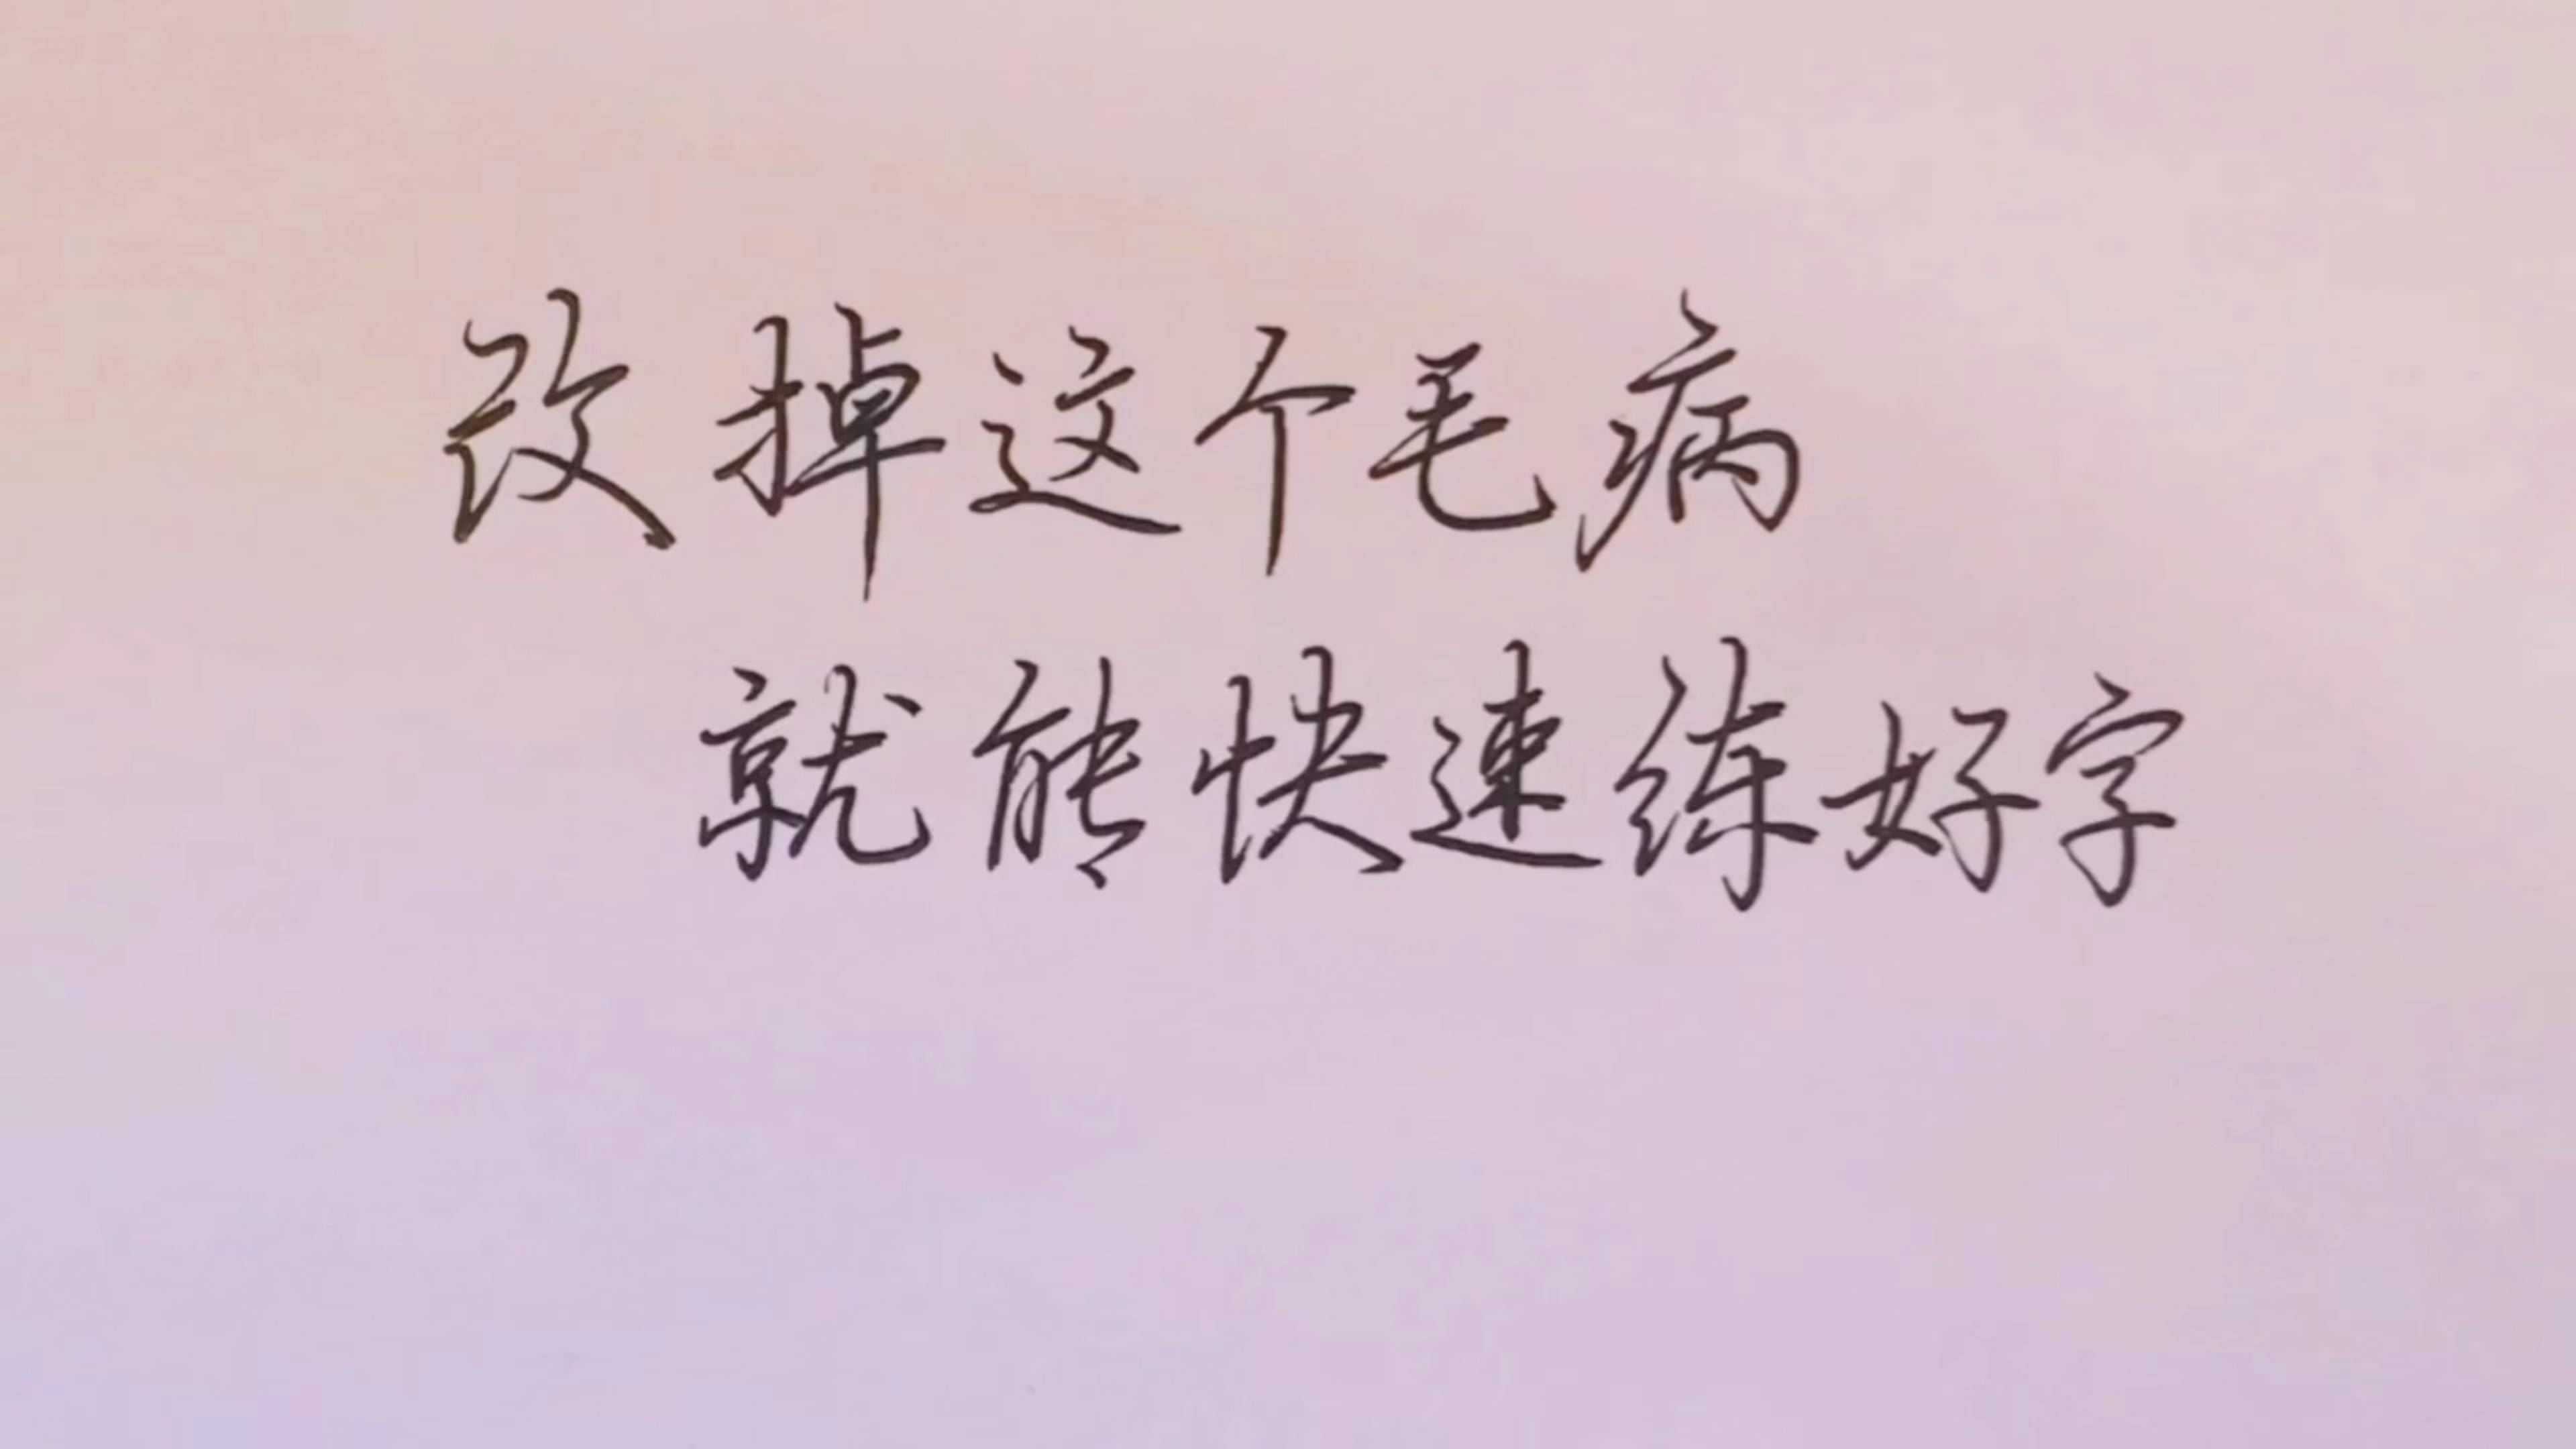 改掉这个毛病
就能快速练好字